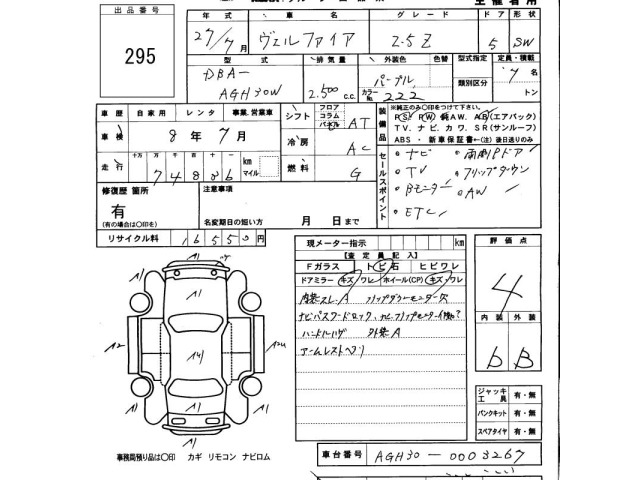 出品番号
295
年式 車名 グレード ドア 形状
27/7月 ヴェルファイア 2.5Z 5 SW
型式 排気量 外装色 色替 型式指定 定員・積載
DBA-
AGH30W 2.500 c.c. パープル 類別区分 7名
カラーNo. 222 トン
車歴 自家用 レンタ 事業.営業車
車検 8年7月
走行 十万 万 千 百 十 一 km マイル
74886
シフト フロア コラム パネル AT
冷房 AC
燃料 G
装備品
※純正のみ○印をつけて下さい。
P.S. P.W. 純AW. AB(エアバック)
TV. ナビ. カワ. SR(サンルーフ)
ABS・新車保証書←(注)後日送りのみ
セールスポイント
・ナビ ・両側Pドア
・TV ・フリップダウン
・Bモニター ・AW
・ETC
修復歴 箇所
有
(有の場合は○印を)
注意事項
名変期日の短い方 月 日まで
リサイクル料 16550円
現メーター指示 km
【査定員記入】
Fガラス トビ石 ヒビワレ
ドアミラー キズ・ワレ ホイール(CP) キズ・ワレ
内装スレ.A フリップダウンモニター欠
ハンドルハゲ 外装A
アームレストヘリ
評価点
4
内装 外装
b B
ジャッキ工具 有・無
パンクキット 有・無
スペアタイヤ 有・無
A1
A1
A1
A1
A1
A2
A1
A1
A1
A1
事務局預り品は○印 カギ リモコン ナビロム
車台番号 AGH30-0003267